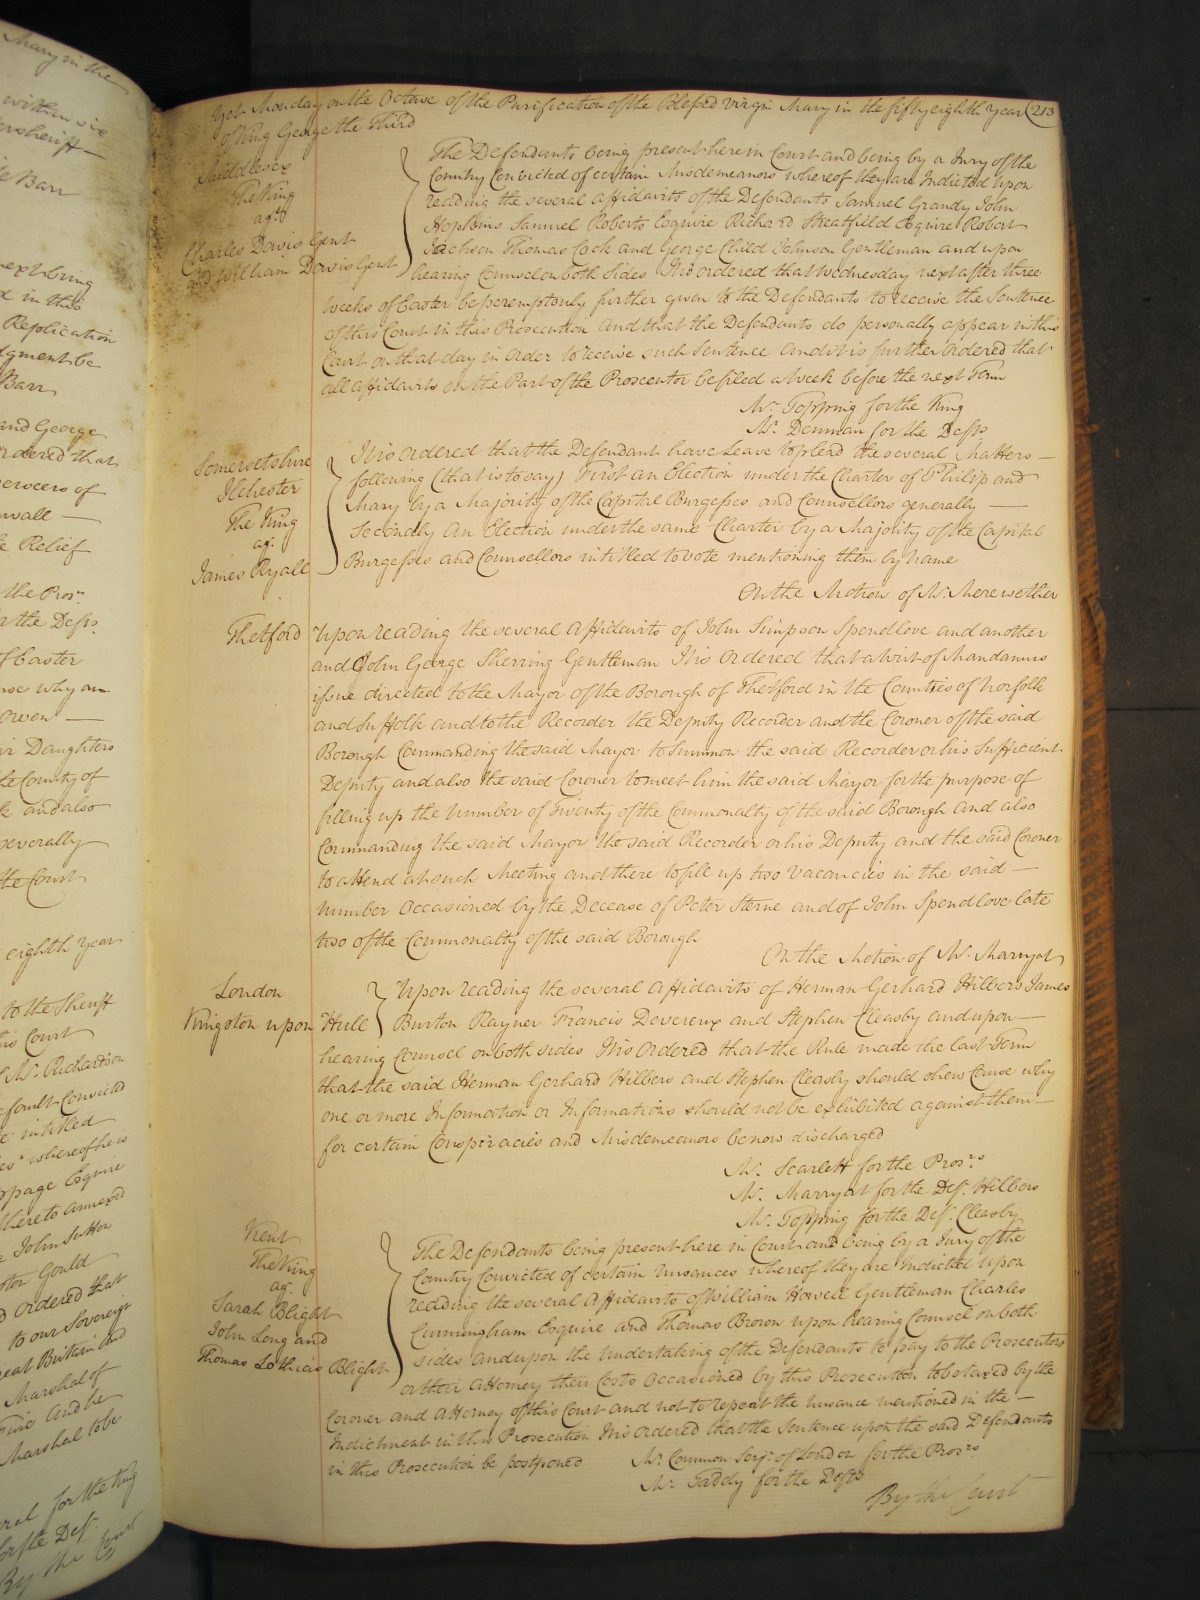 Mary in the
within six
Barr
next bring
d in this
Replication
dgment be
Barr
and George
ordered that
ercers of
wall —
Relief
the Prosr.
the Defts.
of Easter
use why an
Owen —
Daughters
the County of
and also
severally
the Court
eighth Year
to the Sheriff
is Court
Mr. Richardson
fault Convicted
intitled
whereof he is
page Esquire
thereto annexed
John
Gould
ordered that
to our Sovereign
Great Britain and
Marshal of
Fine and be
Marshal to be
for the King
for the Deft.
By the Court
Yet Monday on the Octave of the Purification of the Blessed Virgin Mary in the fifty eighth Year 213
of King George the Third
Middlesex
The King
agt.
Charles Davis Gent
and William Davis Gent
The Defendants being present here in Court and being by a Jury of the
Country Convicted of certain Misdemeanors whereof they are Indicted upon
reading the several affidavits of the Defendants Samuel Grandy John
Hopkins Samuel Roberts Esquire Richard Streatfield Esquire Robert
Jackson Thomas Cock and George Child Johnson Gentleman and upon
hearing Counsel on both sides It is ordered that Wednesday next after three
weeks of Easter be peremptorily further given to the Defendants to receive the Sentence
of this Court in this Prosecution and that the Defendants do personally appear in this
Court on that day in Order to receive such Sentence and it is further Ordered that
all affidavits on the Part of the Prosecutor be filed a week before the next Term
Mr. Topping for the King
Mr. Denman for the Defts.
Somersetshire
Ilchester
The King
agt.
James Ryall
It is ordered that the Defendant have Leave to plead the several Matters —
following (that is to say) First an Election under the Charter of Philip and
Mary by a Majority of the Capital Burgesses and Counsellors generally —
Secondly An Election under the same Charter by a Majority of the Capital
Burgesses and Counsellors intitled to vote mentioning them by name
On the Motion of Mr. Merewether
Thetford
Upon reading the several Affidavits of John Simpson Spendlove and another
and John George Sherring Gentleman It is Ordered that a Writ of Mandamus
issue directed to the Mayor of the Borough of Thetford in the Counties of Norfolk
and Suffolk and to the Recorder the Deputy Recorder and the Coroner of the said
Borough Commanding the said Mayor to Summon the said Recorder or his Sufficient
Deputy and also the said Coroner to meet him the said Mayor for the purpose of
filling up the Number of Twenty of the Commonalty of the said Borough And also
Commanding the said Mayor the said Recorder or his Deputy and the said Coroner
to attend at such Meeting and there to fill up two Vacancies in the said —
Number Occasioned by the Decease of Peter Sterne and of John Spendlove late
two of the Commonalty of the said Borough
On the Motion of Mr. Marryat
London
Kingston upon Hull
Upon reading the several Affidavits of Herman Gerhard Hilbers James
Burton Rayner Francis Devereux and Stephen Cleasby and upon —
hearing Counsel on both sides It is Ordered that the Rule made the last Term
that the said Herman Gerhard Hilbers and Stephen Cleasby should shew Cause why
one or more Information or Informations should not be exhibited against them —
for certain Conspiracies and Misdemeanors be now discharged
Mr. Scarlett for the Prosrs.
Mr. Marryat for the Deft. Hilbers
Mr. Topping for the Deft. Cleasby
Kent
The King
agt.
Sarah Blight
John Long and
Thomas Lothias Blight
The Defendants being present here in Court and being by a Jury of the
Country Convicted of certain Nusances whereof they are Indicted upon
reading the several Affidavits of William Howell Gentleman Charles
Cunningham Esquire and Thomas Brown upon hearing Counsel on both
sides and upon the Undertaking of the Defendants to pay to the Prosecutors
or their Attorney their Costs Occasioned by this Prosecution to be taxed by the
Coroner and Attorney of this Court and not to repeat the Nusance mentioned in the —
Indictment in this Prosecution It is Ordered that the Sentence upon the said Defendants
in this Prosecution be postponed
Mr. Common Serjt. of London for the Prosrs
Mr. Taddy for the Defts
By the Court